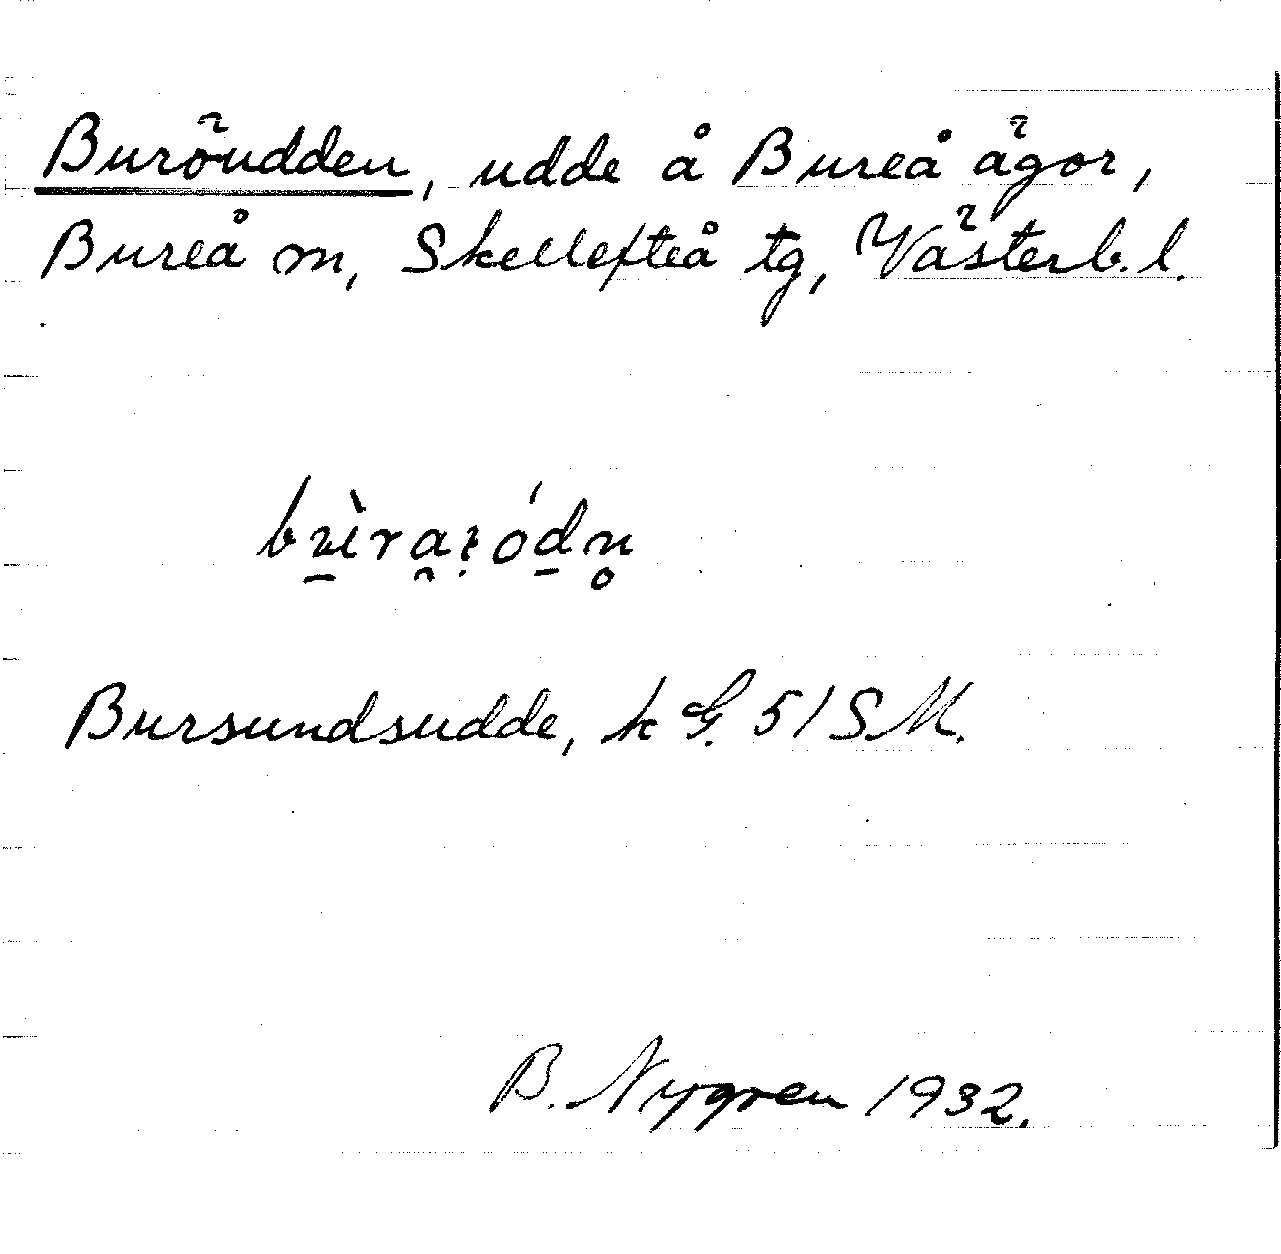 Buröudden, udde å Bureå ägor,
Bureå m, Skellefteå tg, Västerb. l.
Bursundsudde, k G. 51 SM.
B. Nygren 1932.